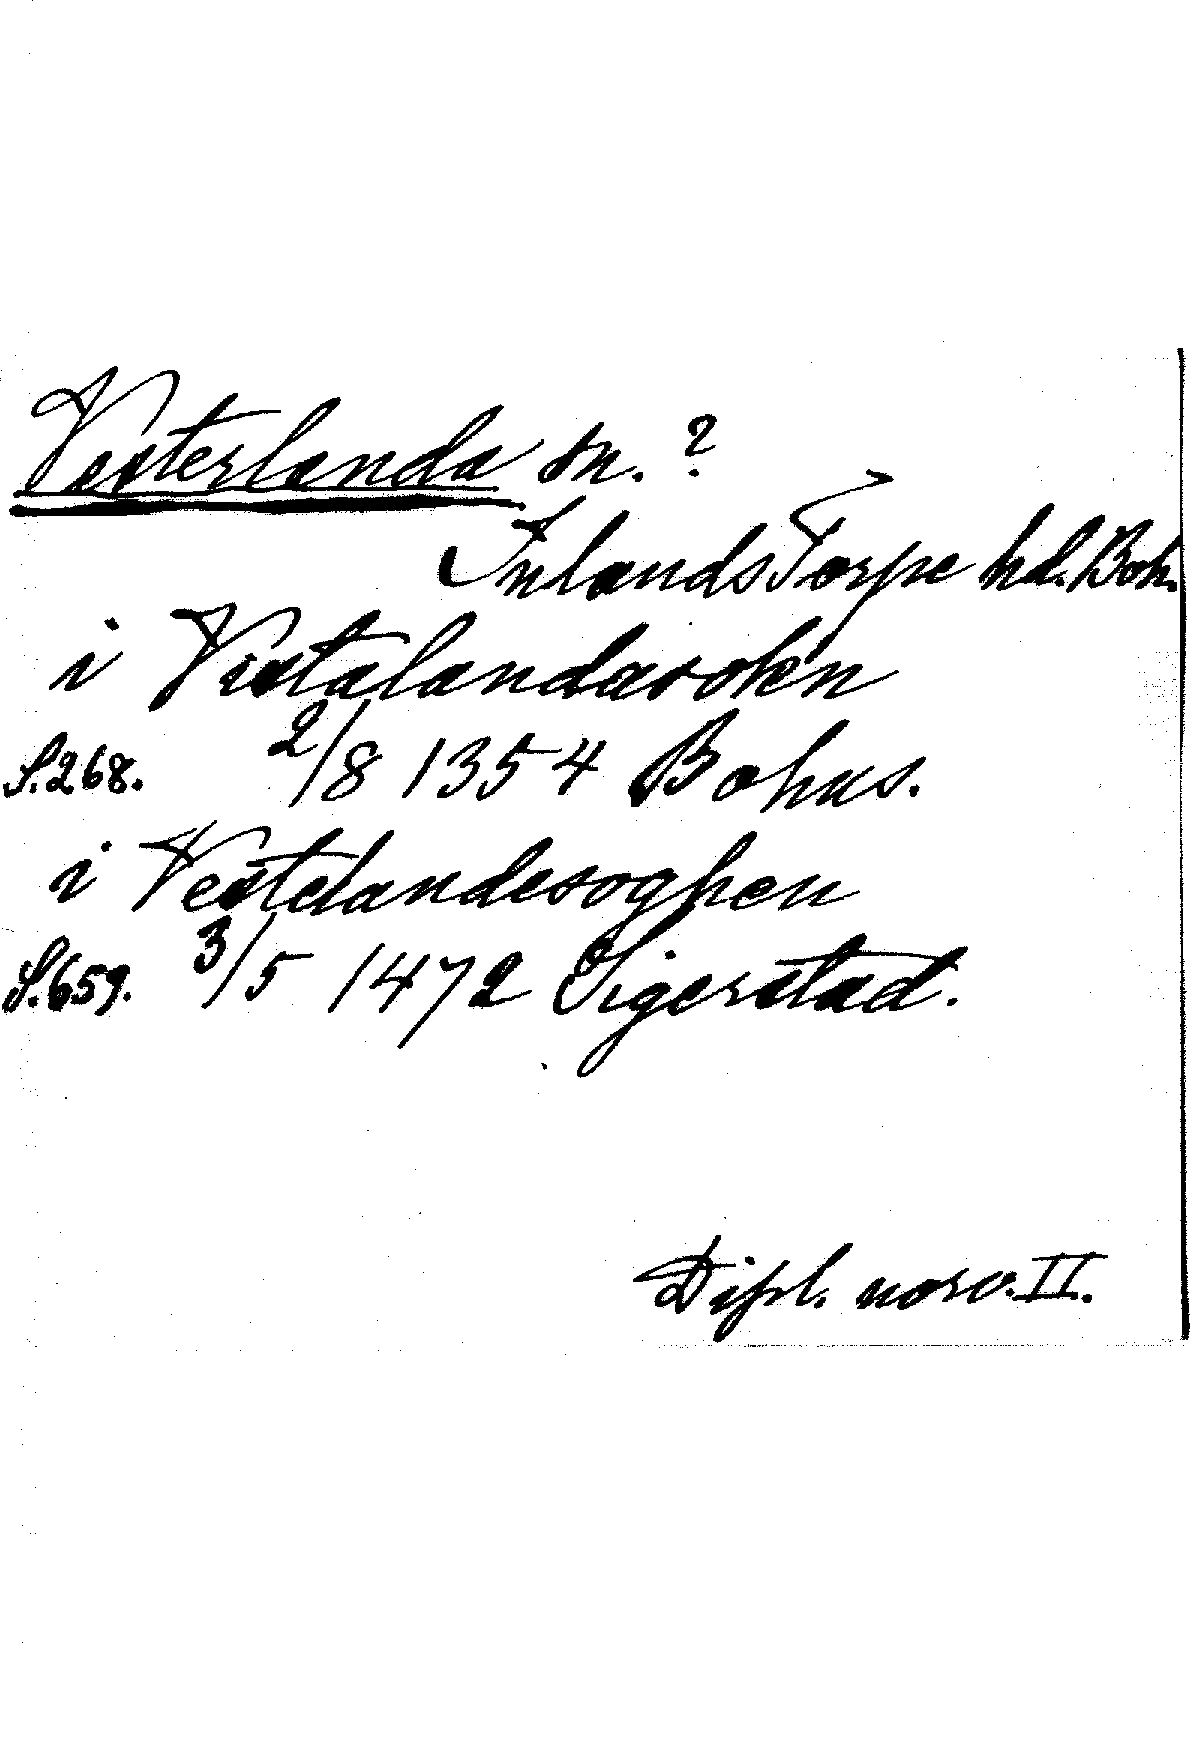 Vesterlanda sn. ?
Inlands Torpe hd. Boh.
i Vestalandasokn
S. 268. 2/8 1354 Bohus.
i Vestelandesoghen
S. 659. 3/5 1472 Sigerstad.
Dipl. norv. II.